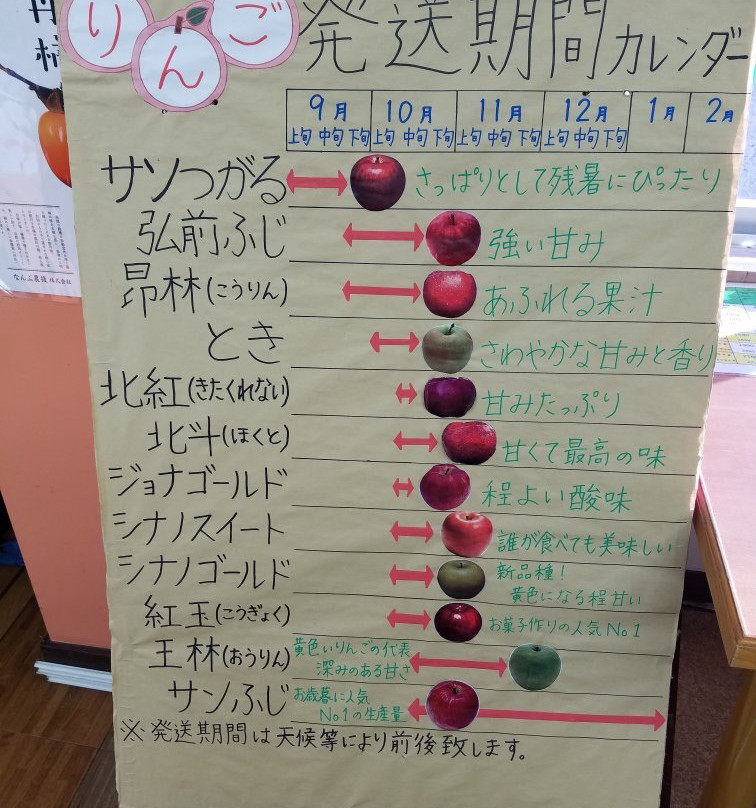 りんご 発送期間カレンダー
9月 10月 11月 12月 1月 2月
上旬 中旬 下旬 上旬 中旬 下旬 上旬 中旬 下旬 上旬 中旬 下旬
サンつがる さっぱりとして残暑にぴったり
弘前ふじ 強い甘み
昂林(こうりん) あふれる果汁
とき さわやかな甘みと香り
北紅(きたくれない) 甘みたっぷり
北斗(ほくと) 甘くて最高の味
ジョナゴールド 程よい酸味
シナノスイート 誰が食べても美味しい
シナノゴールド 新品種!
黄色になる程甘い
紅玉(こうぎょく) お菓子作りの人気No1
王林(おうりん) 黄色いりんごの代表
深みのある甘さ
サンふじ お歳暮に人気
No1の生産量
※発送期間は天候等により前後致します。